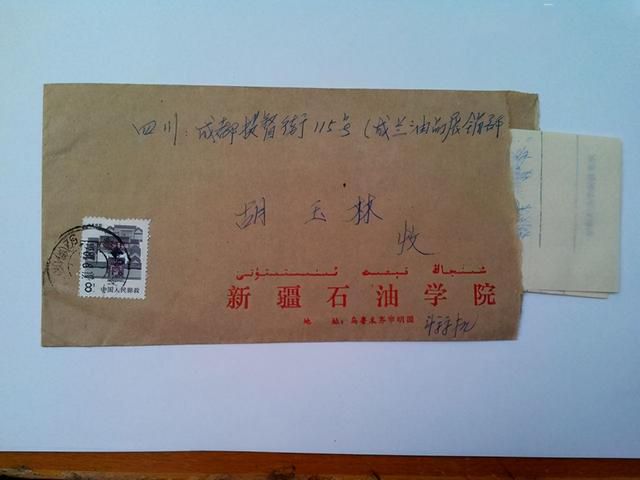 四川:成都提督街115号(成兰油品展销部
胡玉林
收
شىنجاڭ نېفىت ئىنىستىتۇتى
新疆石油学院
地 址:乌鲁木齐市明园
8分 中国人民邮政